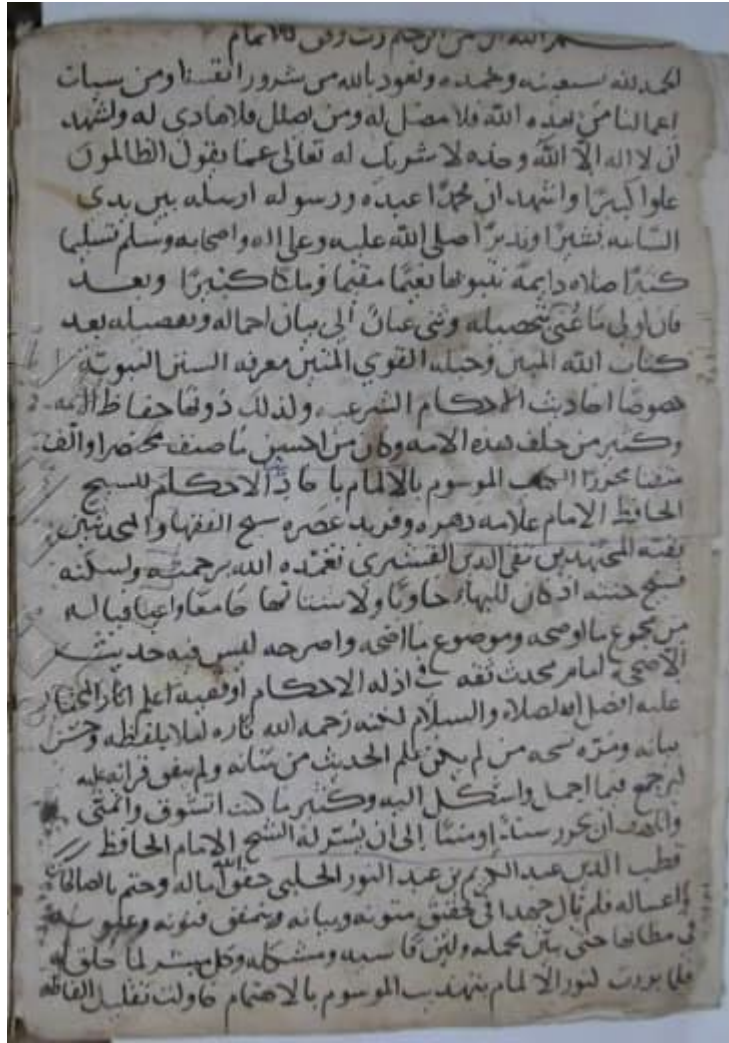 بسم الله الرحمن الرحيم رب وفق للاتمام
الحمد لله نستعينه ونحمده ونعوذ بالله من شرور انفسنا ومن سيات
اعمالنا من يهده الله فلا مضل له ومن يضلل فلا هادى له ونشهد
ان لا اله الا الله وحده لا شريك له تعالى عما يقول الظالمون
علوا كبيرا واشهد ان محمدا عبده ورسوله ارسله بين يدى
الساعه بشيرا ونذيرا صلى الله عليه وعلى اله واصحابه وسلم تسليما
كثيرا صلاه دايمة نعيما مقيما وملكا كبيرا وبعد
فان اولى ما عنى بتحصيله وثنى عنان الى بيان اجماله وتفصيله بعد
كتاب الله المبين وحبله القوي المتين معرفه السنن النبوية
خصوصا احاديث الاحكام الشرعيه ولذلك دونها حفاظ الامه
وكثير من خلف هذه الامه وكان من احسن ما صنف مختصرا والف
محررا الموسوم بالالمام باحاديث الاحكام للشيخ
الحافظ الامام علامه دهره وفريد عصره شيخ الفقها والمحدثين
بقية المجتهدين تقى الدين القشيرى تغمده الله برحمته واسكنه
فسيح جنته اذ كان حاويا ولا جامعا واعيا فيا له
من مجموع ما اوضحه وموضوع ما واصرحه ليس فيه حديث
الا صححه امام محدث ثقه فى ادله الاحكام او فقيه
عليه افضل الصلاه والسلام لكنه رحمه الله تاره
بيانه ومره من لم يكن علم الحديث من شانه ولم يتفق قراته عليه
ليرجع فيما اجمل واشكل اليه وكثير ما كنت اتشوق واتمنى
ان الى ان يسر له الشيخ الامام الحافظ
قطب الدين عبد الكريم بن عبد النور الحلبى حقق الله اماله وختم بالصالحات
اعماله فلم يال جهدا فى تحقيق متونه وبيانه
فى مظانها حتى بين مجمله ومشكله وكل ميسر لما خلق له
فلما برزت لنور الالمام بتهذيب الموسوم بالاهتمام